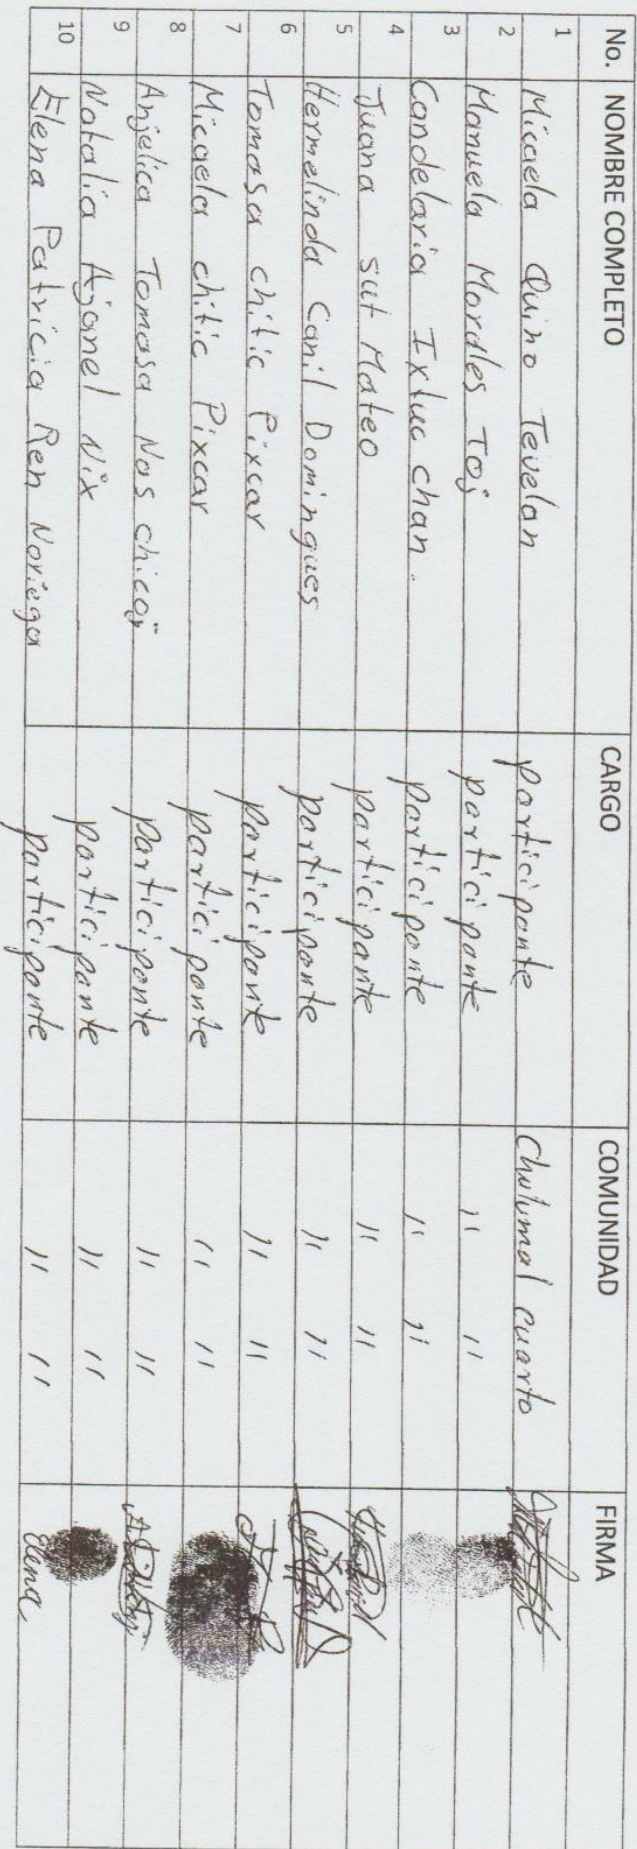 No. NOMBRE COMPLETO CARGO COMUNIDAD FIRMA
1 Micaela Quino Tevelan participante Chulumal cuarto
2 Manuela Morales Toj participante " "
3 Candelaria Ixtuc chan. participante " "
4 Juana sut Mateo participante " "
5 Hermelinda Canil Domingues participante " "
6 Tomasa chitic Pixcar participante " "
7 Micaela chitic Pixcar participante " "
8 Anjelica Tomasa Nas chicoj participante " "
9 Natalia Ajanel Nix participante " "
10 Elena Patricia Ren Noriega participante " " Elena